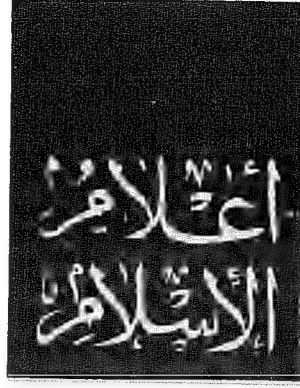 اعلام
الاسلام